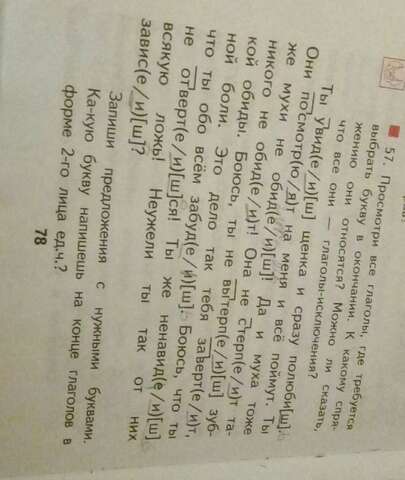 57. Просмотри все глаголы, где требуется
выбрать букву в окончании. К какому спря-
жению они относятся? Можно ли сказать,
что все они — глаголы-исключения?
Ты увид(е/и)[ш] щенка и сразу полюби[ш].
Они посмотр(ю/я)т на меня и всё поймут. Ты
же мухи не обид(е/и)[ш]! Да и муха тоже
никого не обид(е/и)т! Она не стерп(е/и)т та-
кой обиды. Боюсь, ты не вытерп(е/и)[ш] зуб-
ной боли. Это дело так тебя заверт(е/и)т,
что ты обо всём забуд(е/и)[ш]. Боюсь, что ты
не отверт(е/и)[ш]ся! Ты же ненавид(е/и)[ш]
всякую ложь! Неужели ты так от них
завис(е/и)[ш]?
Запиши предложения с нужными буквами.
Ка-кую букву напишешь на конце глаголов в
форме 2-го лица ед.ч.?
78